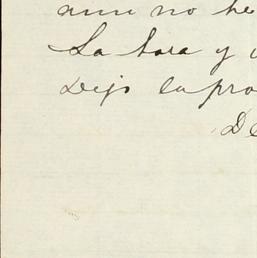 aun no he
La Sara y
Dejo la pro
De